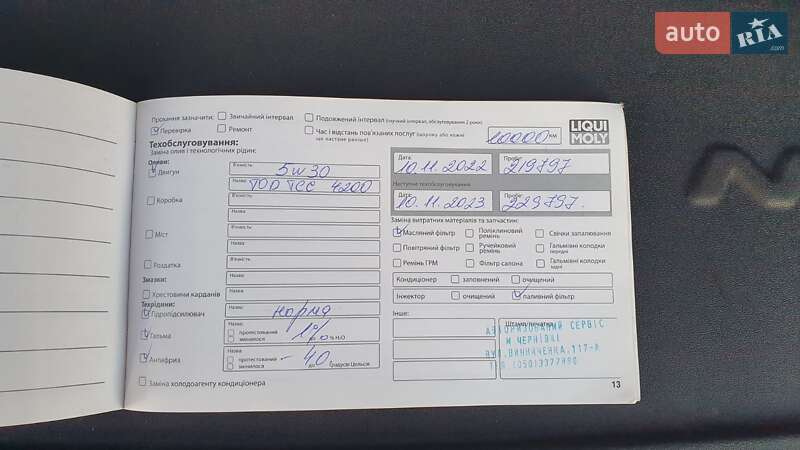 auto RIA.com
Прохання зазначити: Звичайний інтервал Подовжений інтервал (гнучкий інтервал, обслуговування 2 роки)
Перевірка Ремонт Час і відстань пов'язаних послуг 10000 км
LIQUI MOLY
Техобслуговування:
Заміна олив і технологічних рідин:
Оливи:
Двигун В'язкість 5w30
Назва TOP TEC 4200
Дата 10.11.2022 Пробіг 219797
Наступне техобслуговування
Дата: 10.11.2023 Пробіг 229797.
Коробка В'язкість
Назва
Міст В'язкість
Назва
Роздатка В'язкість
Назва
Заміна витратних матеріалів та запчастин:
Масляний фільтр Поліклиновий ремінь Свічки запалювання
Повітряний фільтр Ручейковий ремінь Гальмівні колодки передні
Ремінь ГРМ Фільтр салона Гальмівні колодки задні
Змазки:
Хрестовини карданів Назва
Кондиціонер заповнений очищений
Інжектор очищений паливний фільтр
Техрідини:
Гідропідсилювач Назва норма
Гальма Назва
протестований
змінилося 1% до % H₂O
Антифриз Назва
протестований
змінилося -40 до Градусів Цельсія
Заміна холодоагенту кондиціонера
Інше:
Штамп/печатка
АВТОРИЗОВАНИЙ СЕРВІС
М ЧЕРНІВЦІ
ВУЛ.ВИННИЧЕНКА,117-А
13